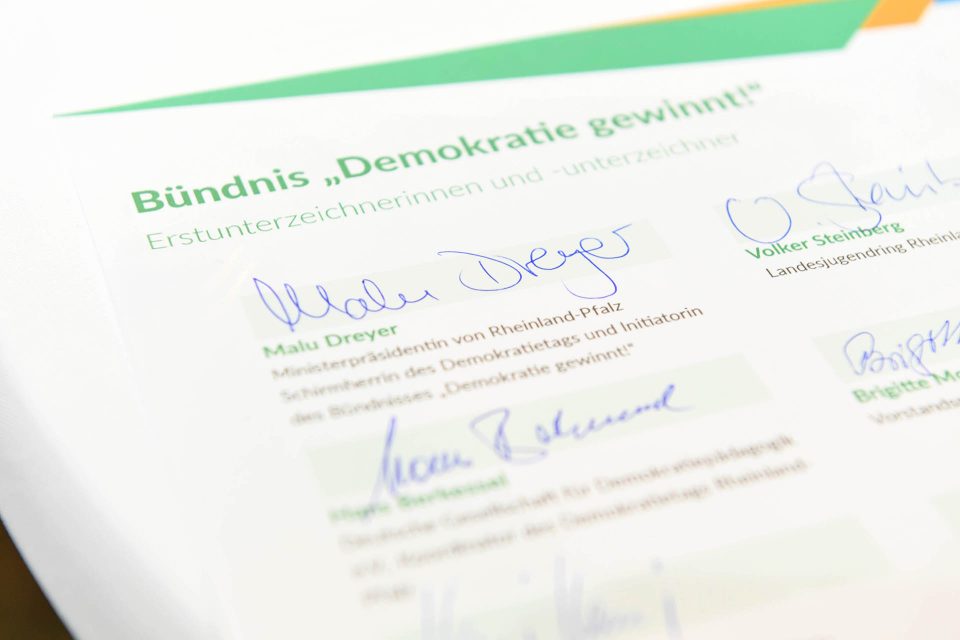 Bündnis „Demokratie gewinnt!“
Erstunterzeichnerinnen und -unterzeichner
Malu Dreyer
Malu Dreyer
Ministerpräsidentin von Rheinland-Pfalz
Schirmherrin des Demokratietags und Initiatorin
des Bündnisses „Demokratie gewinnt!“
Hans Berkessel
Deutsche Gesellschaft für Demokratiepädagogik
e.V., Koordinator des Demokratietags Rheinland-
Pfalz
V. Steinb
Volker Steinberg
Landesjugendring Rheinla
Brigitt
Brigitte Mo
Vorstands